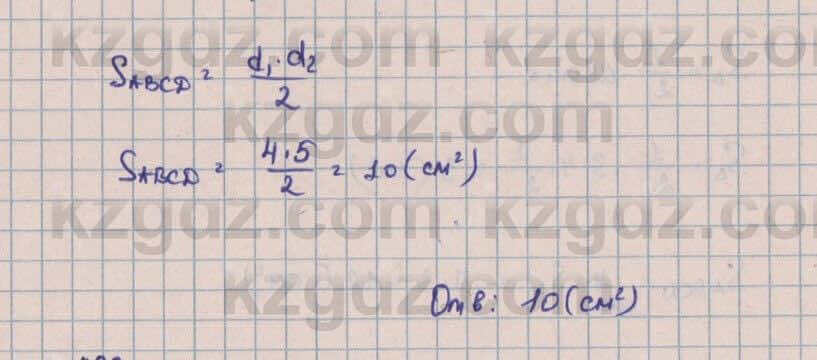 kzgdz.com kzgdz.com
S_ABCD = d₁·d₂/2
kzgdz.com
S_ABCD = 4·5/2 = 10(см²)
kzgdz.com kzgdz.com
kzgdz.com
Отв: 10(см²)